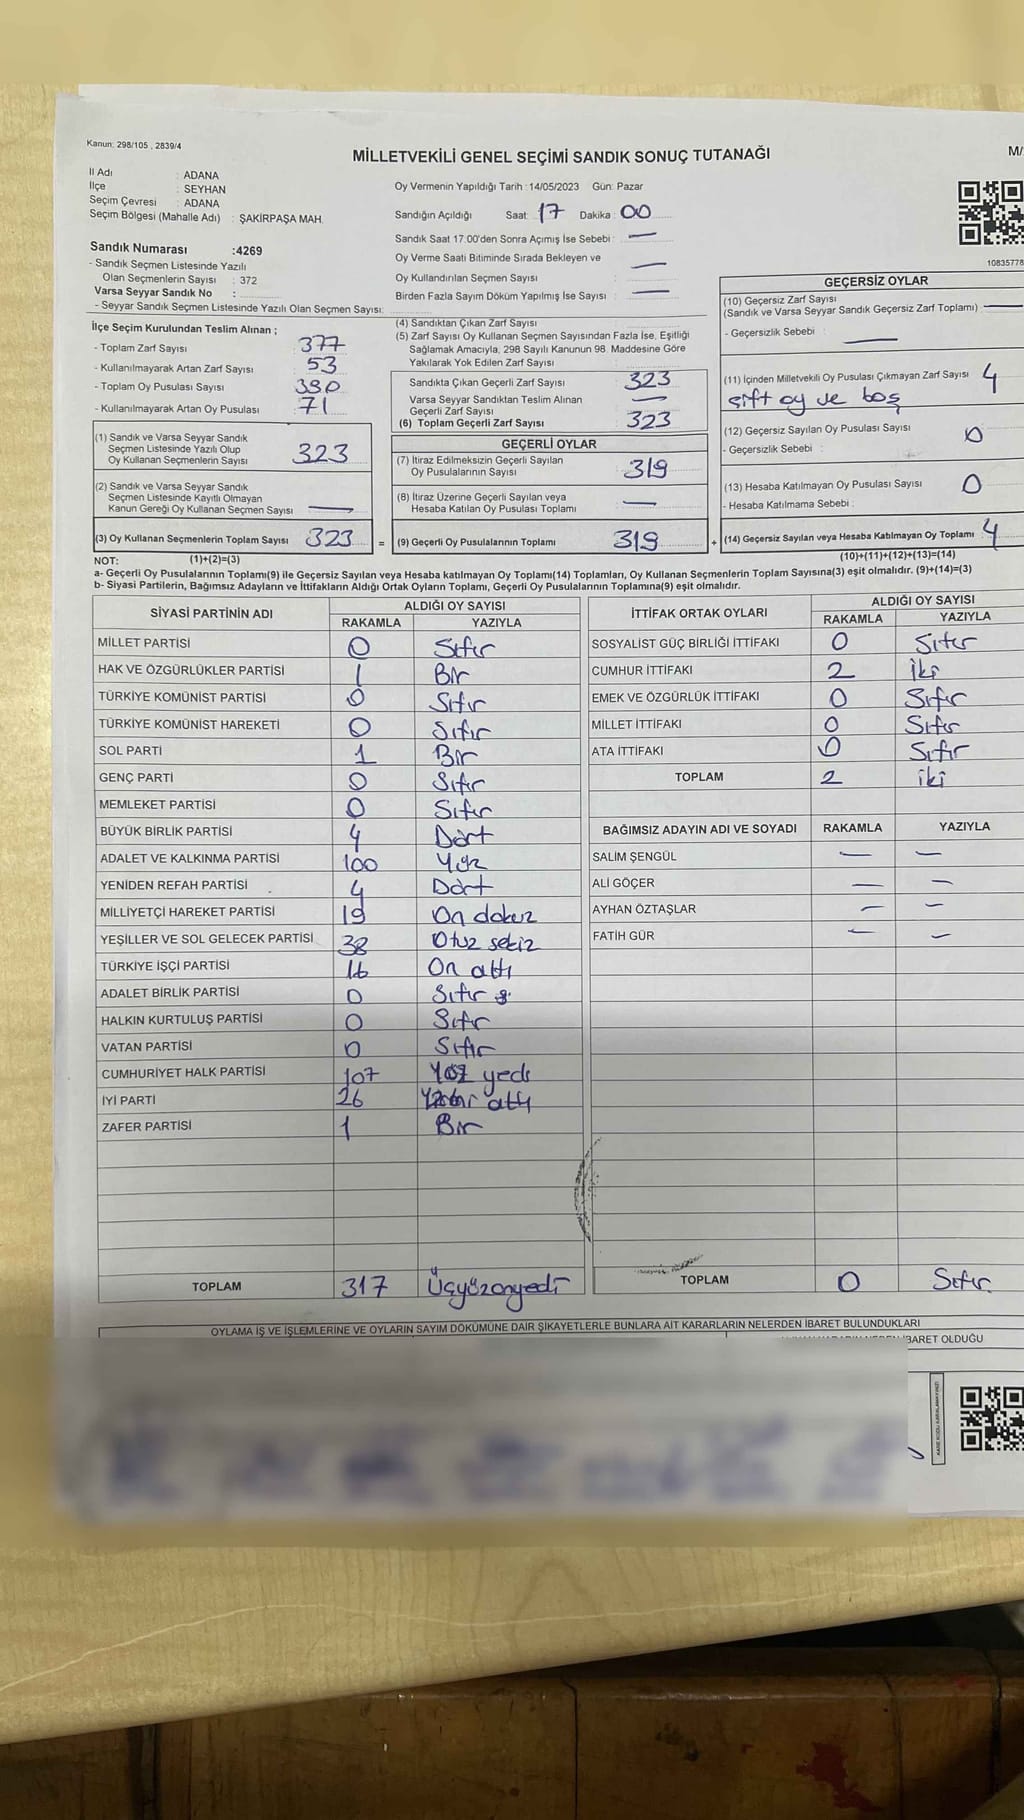 Kanun: 298/105 , 2839/4
MİLLETVEKİLİ GENEL SEÇİMİ SANDIK SONUÇ TUTANAĞI
M/
İl Adı : ADANA
İlçe : SEYHAN
Seçim Çevresi : ADANA
Seçim Bölgesi (Mahalle Adı) : ŞAKİRPAŞA MAH.
Oy Vermenin Yapıldığı Tarih : 14/05/2023 Gün: Pazar
Sandığın Açıldığı Saat: 17 Dakika : 00
Sandık Saat 17.00'den Sonra Açımış İse Sebebi : —
Oy Verme Saati Bitiminde Sırada Bekleyen ve
Oy Kullandırılan Seçmen Sayısı : —
Birden Fazla Sayım Döküm Yapılmış İse Sayısı : —
Sandık Numarası :4269
- Sandık Seçmen Listesinde Yazılı
Olan Seçmenlerin Sayısı : 372
Varsa Seyyar Sandık No :
- Seyyar Sandık Seçmen Listesinde Yazılı Olan Seçmen Sayısı:
10835778
İlçe Seçim Kurulundan Teslim Alınan ;
- Toplam Zarf Sayısı 377
- Kullanılmayarak Artan Zarf Sayısı : 53
- Toplam Oy Pusulası Sayısı : 390
- Kullanılmayarak Artan Oy Pusulası : 71
(1) Sandık ve Varsa Seyyar Sandık
Seçmen Listesinde Yazılı Olup
Oy Kullanan Seçmenlerin Sayısı 323
(2) Sandık ve Varsa Seyyar Sandık
Seçmen Listesinde Kayıtlı Olmayan
Kanun Gereği Oy Kullanan Seçmen Sayısı —
(3) Oy Kullanan Seçmenlerin Toplam Sayısı 323 =
(4) Sandıktan Çıkan Zarf Sayısı :
(5) Zarf Sayısı Oy Kullanan Seçmen Sayısından Fazla İse, Eşitliği
Sağlamak Amacıyla, 298 Sayılı Kanunun 98. Maddesine Göre
Yakılarak Yok Edilen Zarf Sayısı :
Sandıkta Çıkan Geçerli Zarf Sayısı : 323
Varsa Seyyar Sandıktan Teslim Alınan
Geçerli Zarf Sayısı : —
(6) Toplam Geçerli Zarf Sayısı : 323
GEÇERLİ OYLAR
(7) İtiraz Edilmeksizin Geçerli Sayılan
Oy Pusulalarının Sayısı : 319
(8) İtiraz Üzerine Geçerli Sayılan veya
Hesaba Katılan Oy Pusulası Toplamı : —
(9) Geçerli Oy Pusulalarının Toplamı 319 +
GEÇERSİZ OYLAR
(10) Geçersiz Zarf Sayısı
(Sandık ve Varsa Seyyar Sandık Geçersiz Zarf Toplamı) : —
- Geçersizlik Sebebi : —
(11) İçinden Milletvekili Oy Pusulası Çıkmayan Zarf Sayısı : 4
çift oy ve boş
(12) Geçersiz Sayılan Oy Pusulası Sayısı : 0
- Geçersizlik Sebebi :
(13) Hesaba Katılmayan Oy Pusulası Sayısı : 0
- Hesaba Katılmama Sebebi :
(14) Geçersiz Sayılan veya Hesaba Katılmayan Oy Toplamı : 4
NOT: (1)+(2)=(3)
(10)+(11)+(12)+(13)=(14)
a- Geçerli Oy Pusulalarının Toplamı(9) ile Geçersiz Sayılan veya Hesaba katılmayan Oy Toplamı(14) Toplamları, Oy Kullanan Seçmenlerin Toplam Sayısına(3) eşit olmalıdır. (9)+(14)=(3)
b- Siyasi Partilerin, Bağımsız Adayların ve İttifakların Aldığı Ortak Oyların Toplamı, Geçerli Oy Pusulalarının Toplamına(9) eşit olmalıdır.
SİYASİ PARTİNİN ADI ALDIĞI OY SAYISI
RAKAMLA YAZIYLA
MİLLET PARTİSİ 0 Sıfır
HAK VE ÖZGÜRLÜKLER PARTİSİ 1 Bir
TÜRKİYE KOMÜNİST PARTİSİ 0 Sıfır
TÜRKİYE KOMÜNİST HAREKETİ 0 Sıfır
SOL PARTİ 1 Bir
GENÇ PARTİ 0 Sıfır
MEMLEKET PARTİSİ 0 Sıfır
BÜYÜK BİRLİK PARTİSİ 4 Dört
ADALET VE KALKINMA PARTİSİ 100 Yüz
YENİDEN REFAH PARTİSİ 4 Dört
MİLLİYETÇİ HAREKET PARTİSİ 19 On dokuz
YEŞİLLER VE SOL GELECEK PARTİSİ 38 Otuz sekiz
TÜRKİYE İŞÇİ PARTİSİ 16 On altı
ADALET BİRLİK PARTİSİ 0 Sıfır
HALKIN KURTULUŞ PARTİSİ 0 Sıfır
VATAN PARTİSİ 0 Sıfır
CUMHURİYET HALK PARTİSİ 107 Yüz yedi
İYİ PARTİ 26 Yirmi altı
ZAFER PARTİSİ 1 Bir
TOPLAM 317 Üçyüzonyedi
İTTİFAK ORTAK OYLARI ALDIĞI OY SAYISI
RAKAMLA YAZIYLA
SOSYALİST GÜÇ BİRLİĞİ İTTİFAKI 0 Sıfır
CUMHUR İTTİFAKI 2 İki
EMEK VE ÖZGÜRLÜK İTTİFAKI 0 Sıfır
MİLLET İTTİFAKI 0 Sıfır
ATA İTTİFAKI 0 Sıfır
TOPLAM 2 iki
BAĞIMSIZ ADAYIN ADI VE SOYADI RAKAMLA YAZIYLA
SALİM ŞENGÜL — —
ALİ GÖÇER — —
AYHAN ÖZTAŞLAR — —
FATİH GÜR — —
TOPLAM 0 Sıfır.
OYLAMA İŞ VE İŞLEMLERİNE VE OYLARIN SAYIM DÖKÜMÜNE DAİR ŞİKAYETLERLE BUNLARA AİT KARARLARIN NELERDEN İBARET BULUNDUKLARI
İBARET OLDUĞU